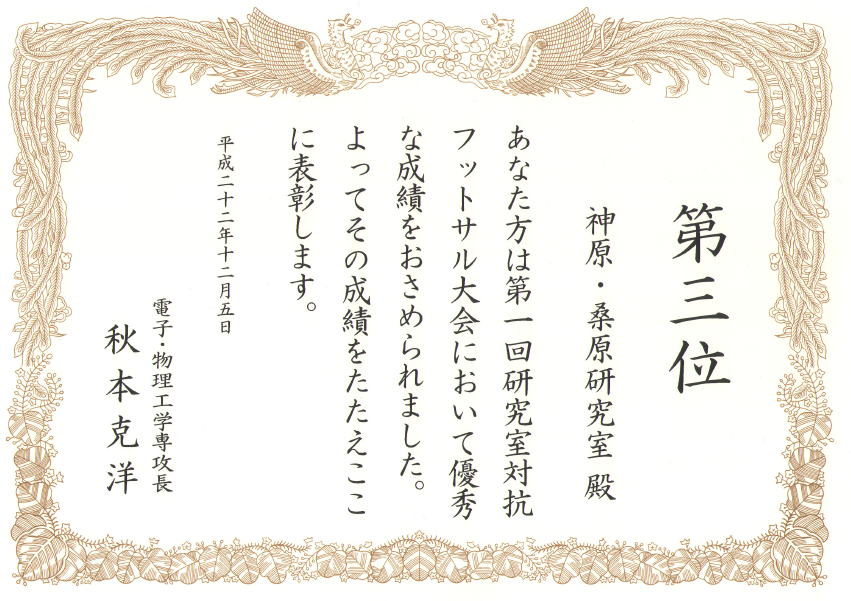 第三位
神原・桑原研究室 殿
あなた方は第一回研究室対抗
フットサル大会において優秀
な成績をおさめられました。
よってその成績をたたえここ
に表彰します。
平成二十二年十二月五日
電子・物理工学専攻長
秋本克洋